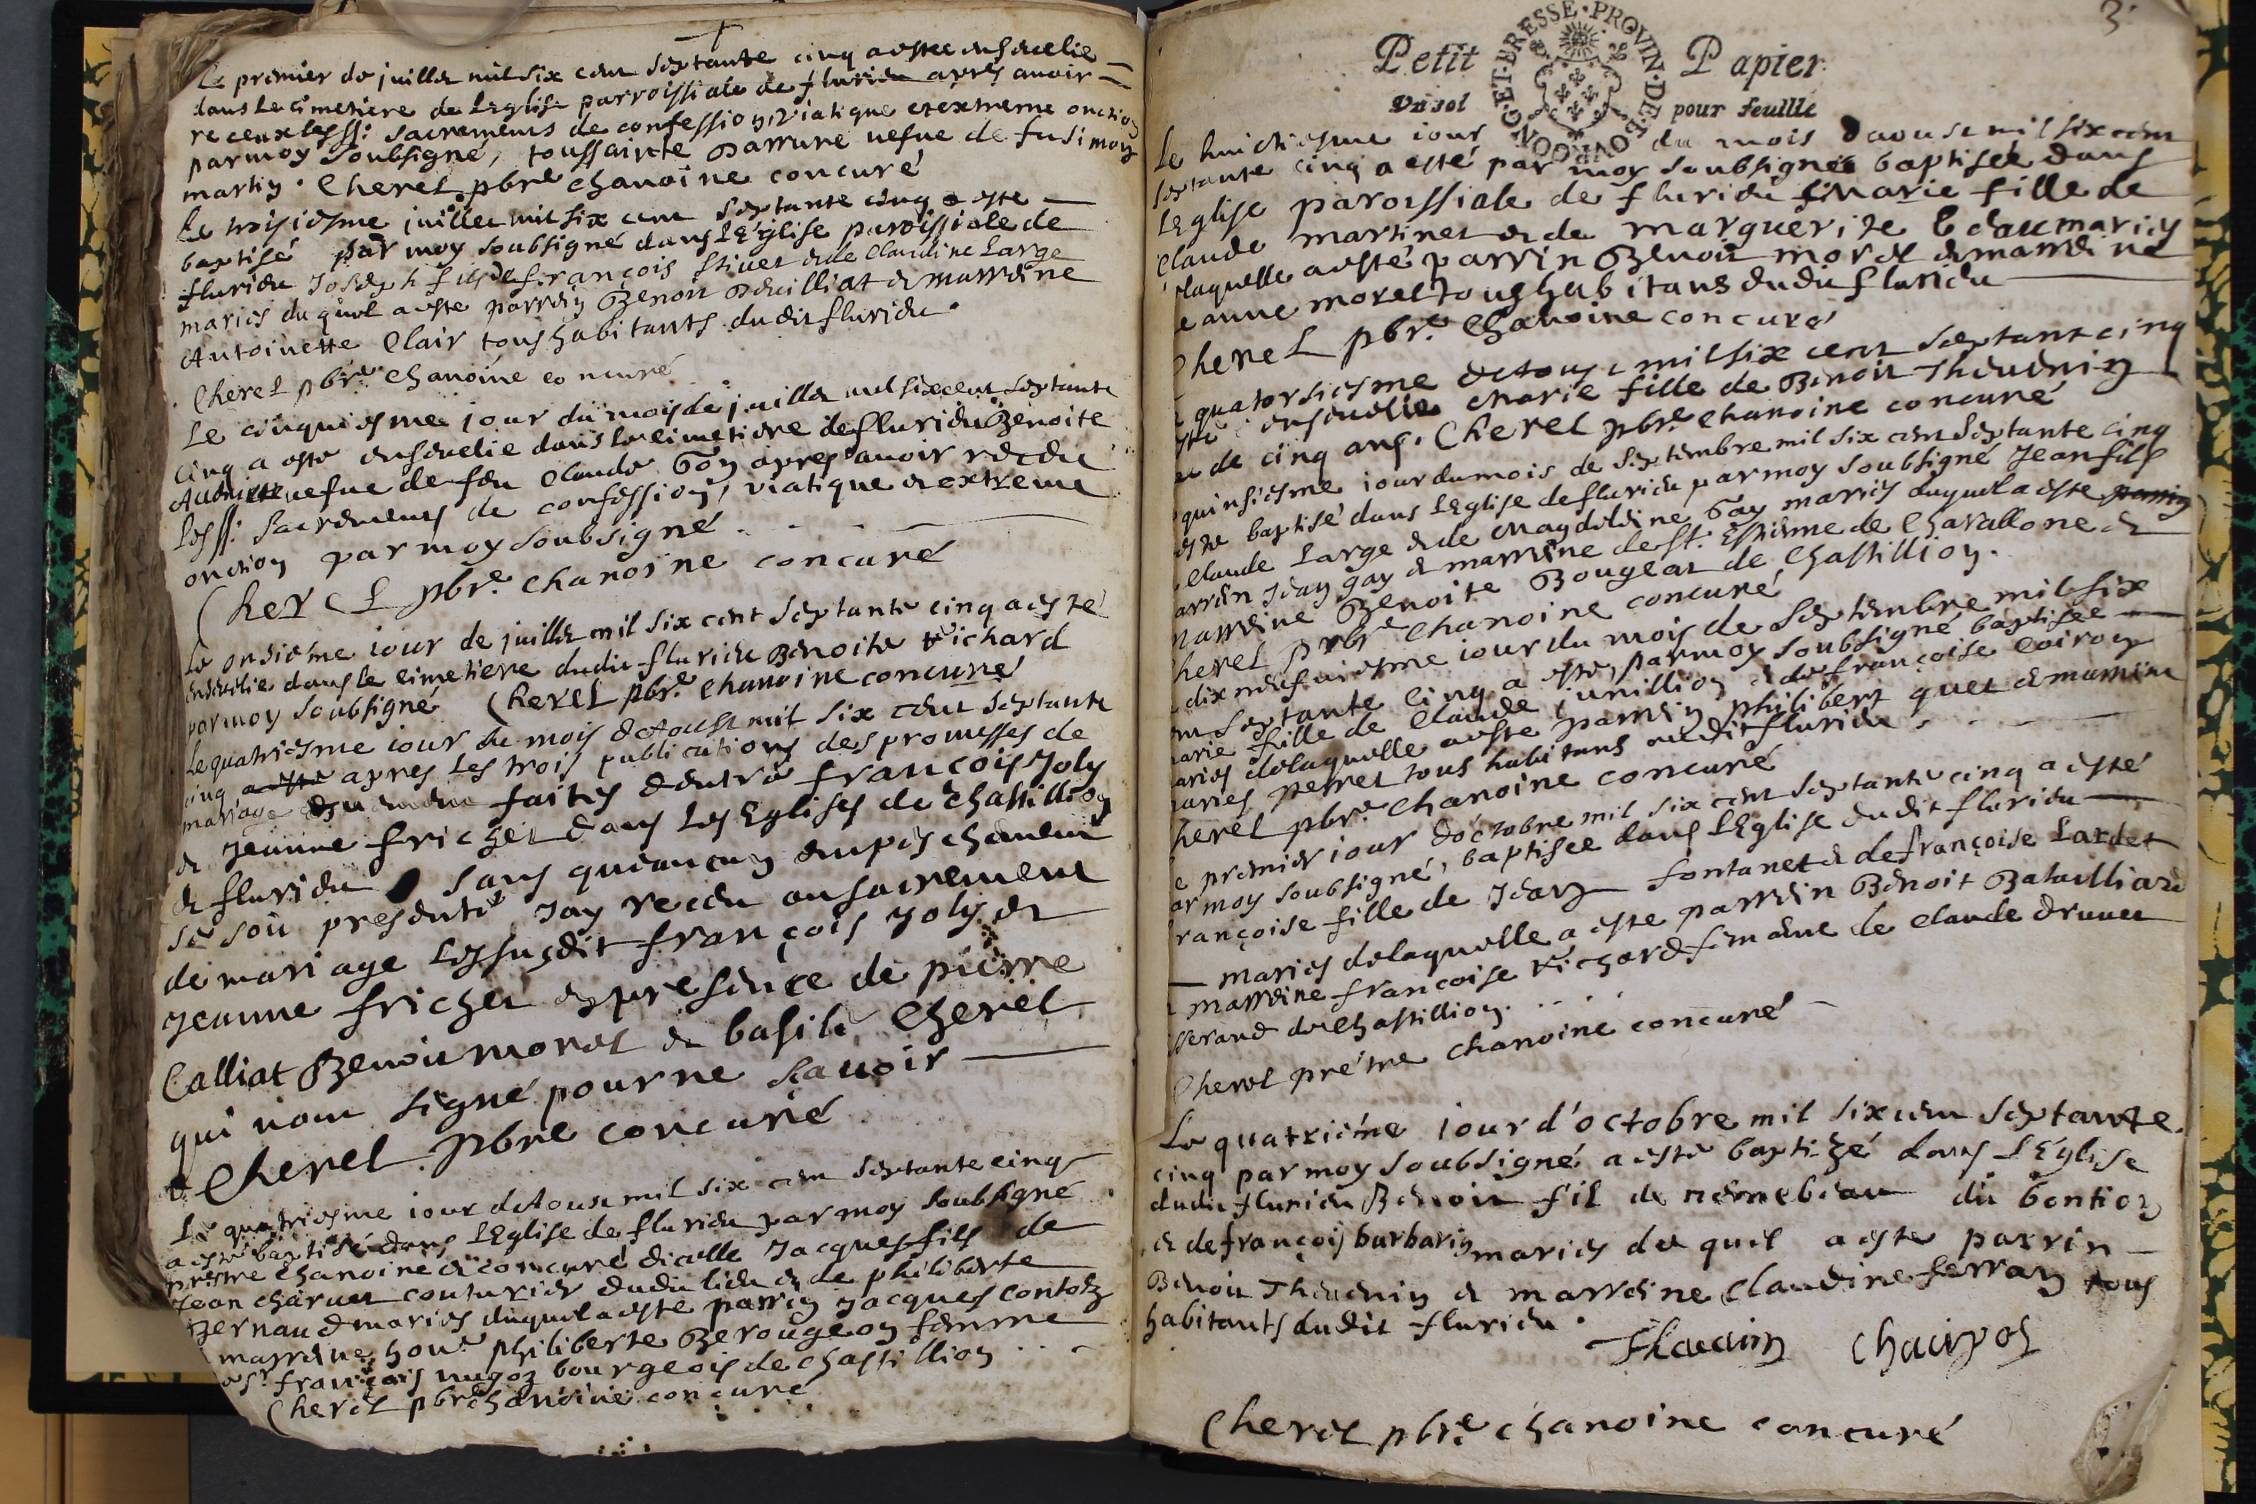 Le premier de juillet mil six cent septante cinq a estee ensevelie
dans le cimetiere de leglise parroissiale de flurieu apres avoir
receu les ss: sacrements de confession, viatique et extreme onction
par moy soubsigné, toussainte parrune vefue de fu simon
martin. Cherel pbre chanoine concuré
Le troisiesme juillet mil six cent septante cinq a este
baptisé par moy soubsigné dans lEglise paroissiale de
flurieu Joseph fils de françois stivet et de Claudine Large
mariés du quel a este parrein Benoit devilliat et marreine
Antoinette Clair tous habitants dudit flurieu.
Cherel pbre chanoine concuré
Le cinquiesme jour du moys de juillet mil six cent septante
cinq a este ensevelie dans le cimetiere de flurieu Benoite
vefue de feu Claude Gon apres avoir receu
les ss: sacremens de confession, viatique et extreme
onction par moy soubsigné.
Cherel pbre. chanoine concuré
Le onsieme iour de juillet mil six cent septante cinq a esté
ensevelie dans le cimetiere dudit flurieu Benoite Richard
par moy soubsigné Cherel pbre. chanoine concuré
Le quatriesme iour du mois d'Aoust mil six cent septante
cinq a esté apres les trois publications des promesses de
mariage faites d'entre françois Joly
et Jeanne frichet dans les Eglises de Chastillion
et flurieu sans qu'aucun empeschement
se soit presenté Jay receu au sacrement
de mariage les susdit françois Joly et
Jeanne frichet en presence de pierre
Calliat Benoit morel et basile Cherel
qui n'ont signé pour ne scavoir
Cherel pbre concuré
Le quatriesme iour d'Aoust mil six cent septante cinq
a esté baptisé dans lEglise de flurieu par moy soubsigné
prestre chanoine et concuré d'icelle Jacques fils de
Jean charvet couturier dudit lieu et de philiberte
Bernaud mariés duquel a esté parrin Jacques Contoz
marreine hon.e philiberte Berougeon femme
sr françois nugoz bourgeois de Chastillion
Cherel pbre chanoine concuré
3.
Petit Papier
Un sol pour feuille
BOURGONG·ET·BRESSE·PROVIN·DE
Le huictiesme iour du mois d'aoust mil six cent
septante cinq a esté par moy soubsigné baptisée dans
lEglise paroissiale de flurieu Marie fille de
Claude martinet et de marguerite mariés
laquelle a esté parrin Benoit morel et marreine
Jeanne morel tous habitans dudit flurieu
Cherel pbre. Chanoine concuré
quatorsiesme d'Aoust mil six cent septante cinq
esté ensevelie Marie fille de Benoit Thevenin
de cinq ans. Cherel pbre chanoine concuré
quinsiesme iour du mois de septembre mil six cent septante cinq
esté baptisé dans lEglise de flurieu par moy soubsigné Jean fils
Claude Large et de Magdeleine Gay mariés duquel a este parrin
parrin Jean gay et marreine de st. Estienne de Chavallone et
marreine Benoite Bougeat de Chastillion.
Cherel pbre Chanoine concuré
dix neufviesme iour du mois de septembre mil six
cent septante cinq a este par moy soubsigné baptisée
marie fille de Claude juvillion et de françoise Coiron
mariés de laquelle a este parrein philibert quet et marreine
maries perret tous habitans audit flurieu.
Cherel pbre. Chanoine concuré
Le premier iour d'octobre mil six cent septante cinq a esté
par moy soubsigné, baptisée dans lEglise dudit flurieu
françoise fille de Jean fontanet et de françoise Lardet
mariés de laquelle a este parrin Benoit Batailliard
marreine francoise Richard femme de Claude druuet
de Chastillion.
Cherel prétre chanoine concuré
Le quatriéme iour d'octobre mil six cent septante
cinq par moy soubsigné a esté baptizé dans l'Eglise
dudit flurieu Benoit fil de du bontion
et de françois barbarin mariés de quil a este parrin
Benoit Thevenin et marreine Claudine ferran tous
habitants dudit flurieu.
Thevenin
Cherel pbre. chanoine concuré